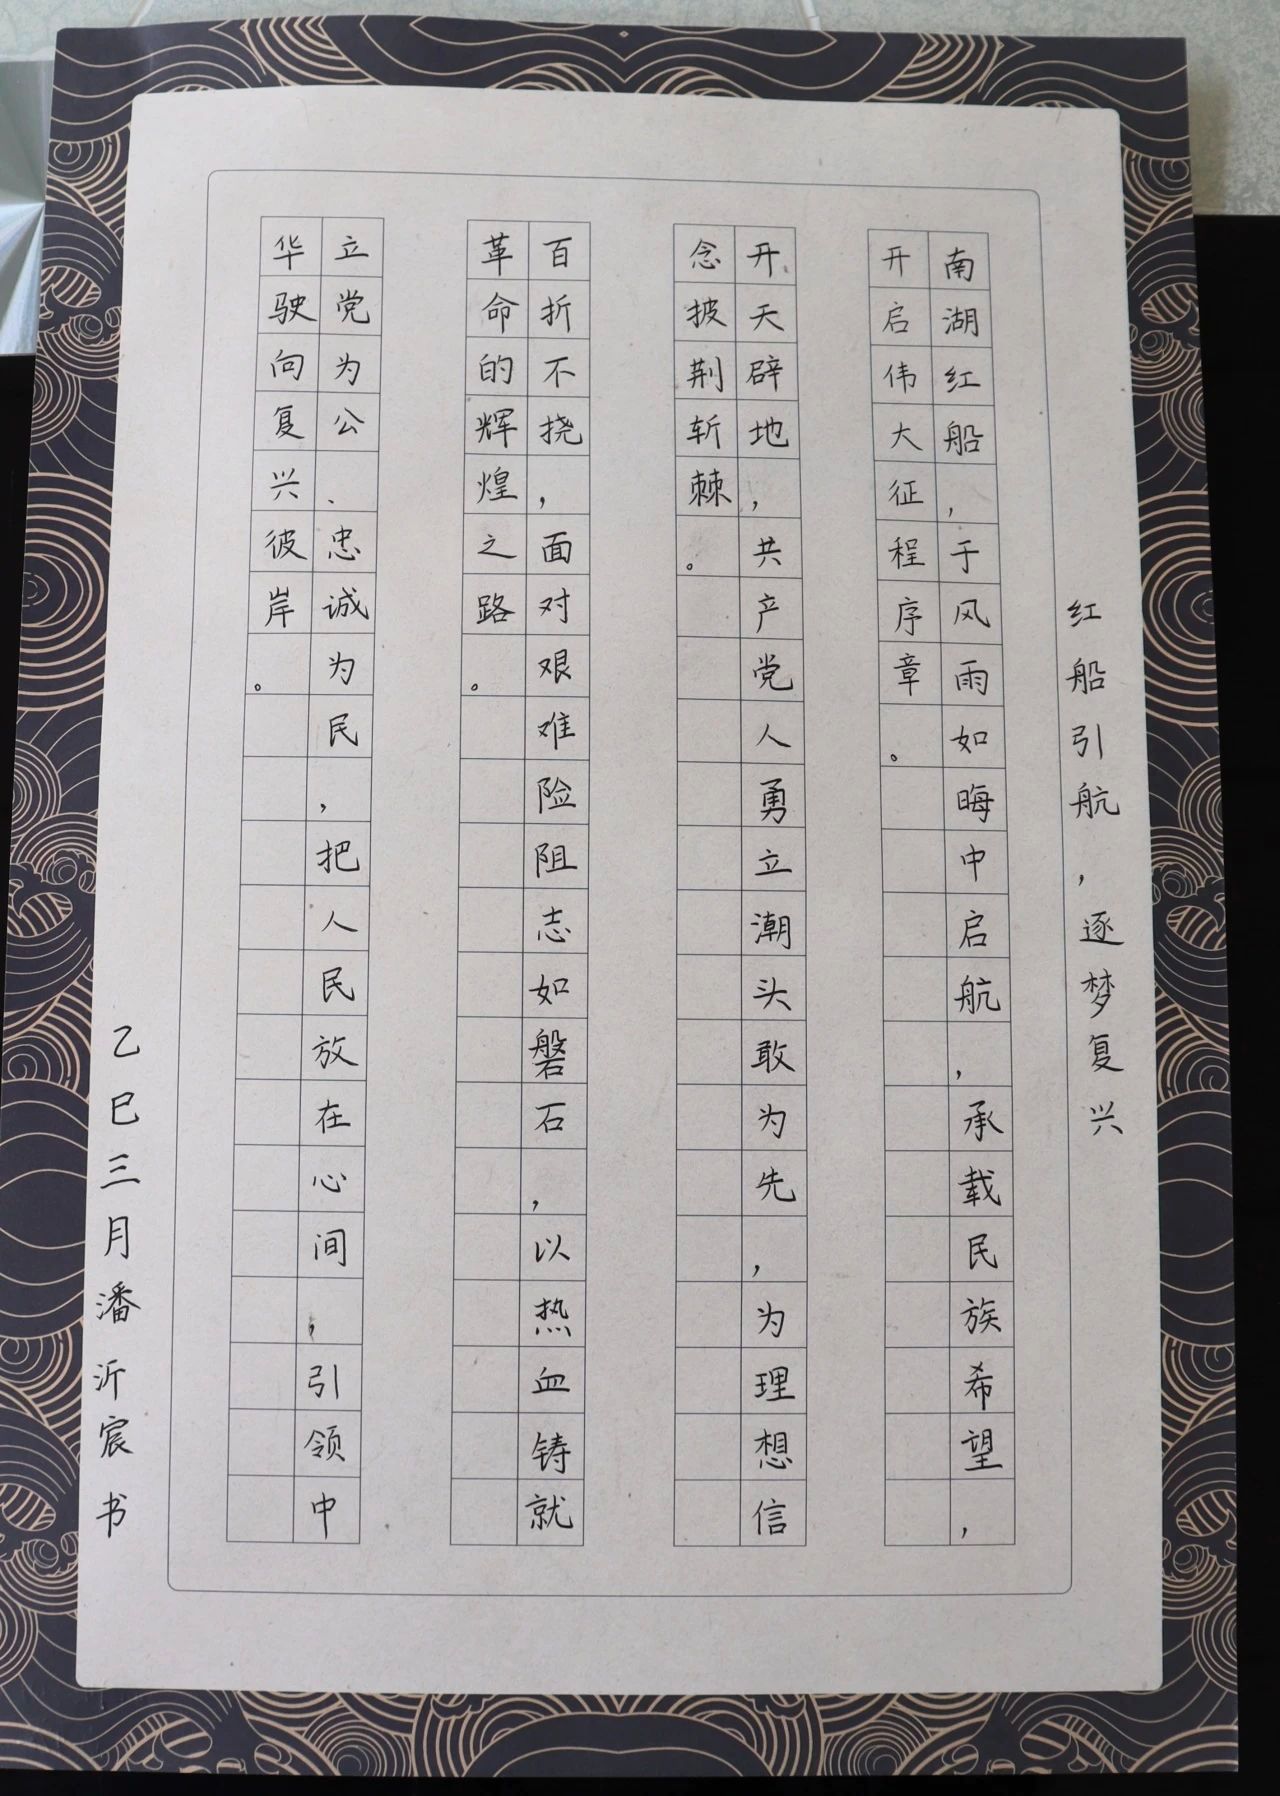 红船引航,逐梦复兴
南湖红船,于风雨如晦中启航,承载民族希望,
开启伟大征程序章。
开天辟地,共产党人勇立潮头敢为先,为理想信
念披荆斩棘。
百折不挠,面对艰难险阻志如磐石,以热血铸就
革命的辉煌之路。
立党为公、忠诚为民,把人民放在心间,引领中
华驶向复兴彼岸。
乙巳三月潘沂宸书